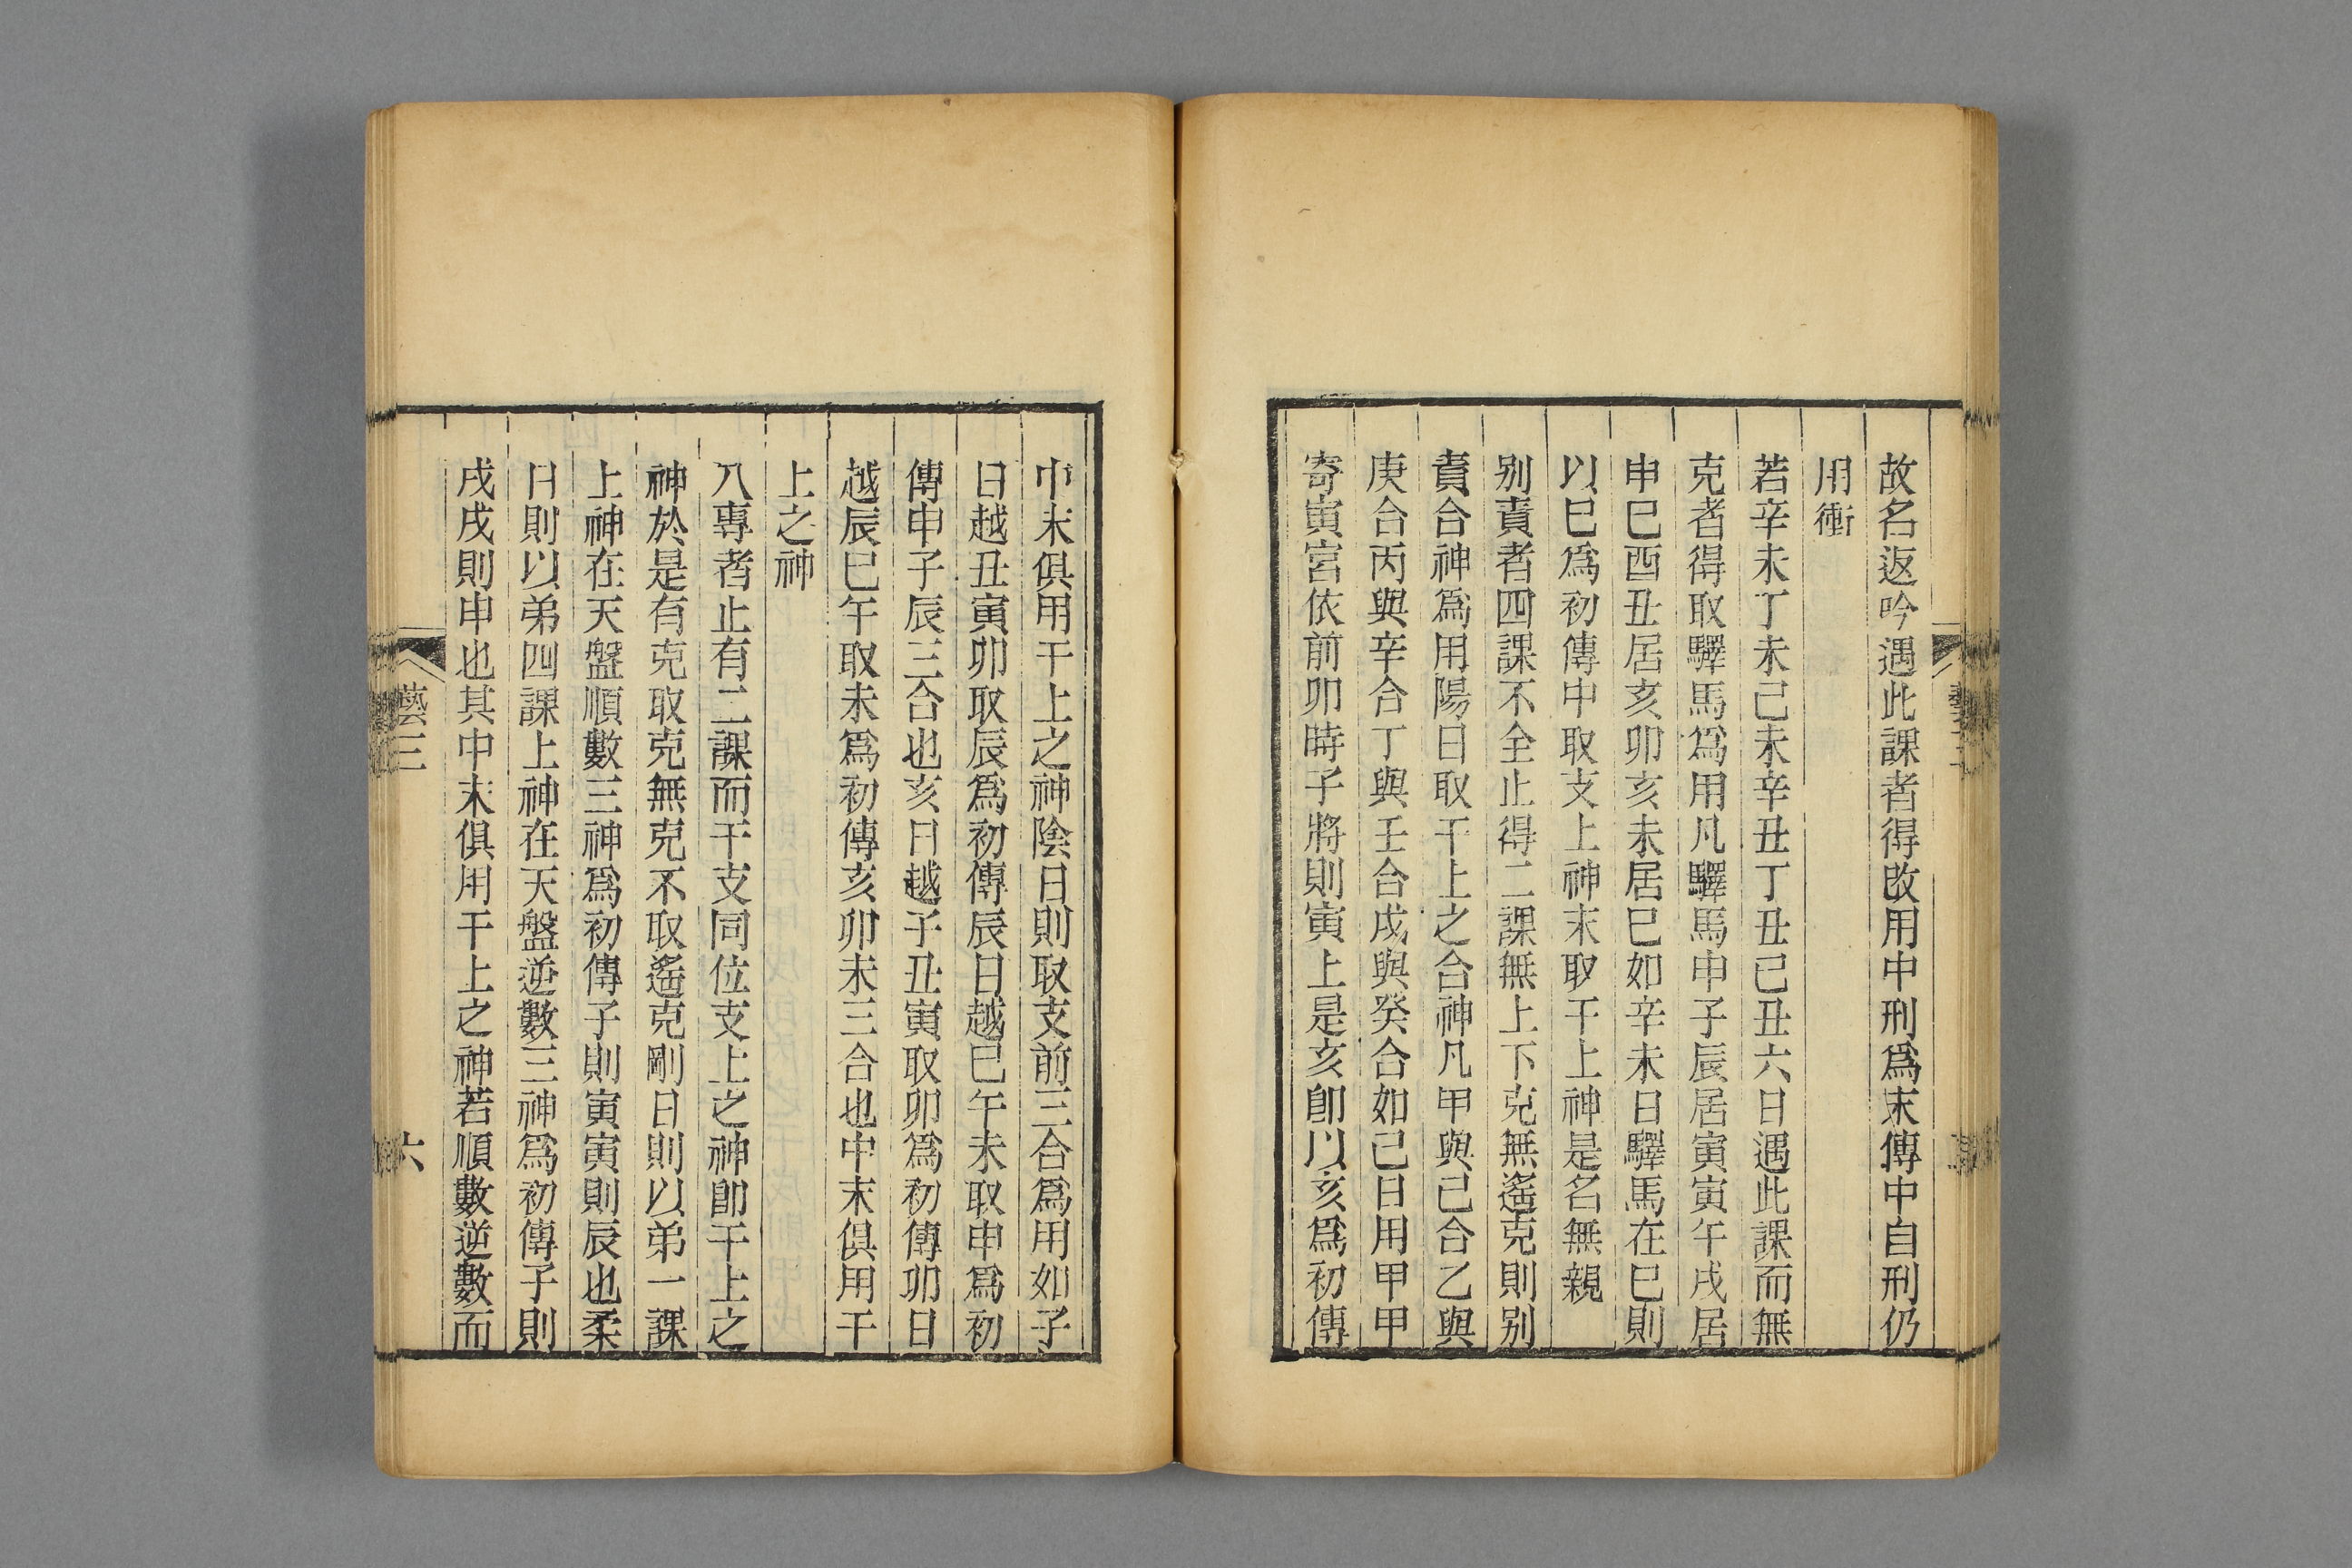 故名返吟遇此課者得改用中刑爲末傳中自刑仍
用衝
若辛未丁未己未辛丑丁丑己丑六日遇此課而無
克者得取驛馬爲用凡驛馬申子辰居寅寅午戌居
申巳酉丑居亥卯亥未居巳如辛未日驛馬在巳則
以巳爲初傳中取支上神末取干上神是名無親
别責者四課不全止得二課無上下克無遙克則别
責合神爲用陽日取干上之合神凡甲與己合乙與
庚合丙與辛合丁與壬合戊與癸合如己日用甲甲
寄寅宮依前卯時子將則寅上是亥卽以亥爲初傳
中末俱用干上之神陰日則取支前三合爲用如子
日越丑寅卯取辰爲初傳辰日越巳午未取申爲初
傳申子辰三合也亥日越子丑寅取卯爲初傳卯日
越辰巳午取未爲初傳亥卯未三合也中末俱用干
上之神
八專者止有二課而干支同位支上之神卽干上之
神於是有克取克無克不取遙克剛日則以弟一課
上神在天盤順數三神爲初傳子則寅寅則辰也柔
日則以弟四課上神在天盤逆數三神爲初傳子則
戌戌則申也其中末俱用干上之神若順數逆數而
藝三
六